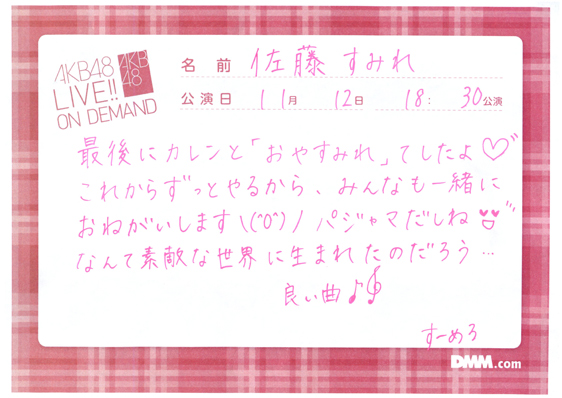 AKB48
LIVE!!
ON DEMAND
AKB
48
名前 佐藤すみれ
公演日 11月 12日 18:30公演
最後にカレンと「おやすみれ」てしたよ♡
これからずっとやるから、みんなも一緒に
おねがいします\(^0^)/パジャマだしね
なんて素敵な世界に生まれたのだろう…
良い曲♪
すーめろ
DMM.com